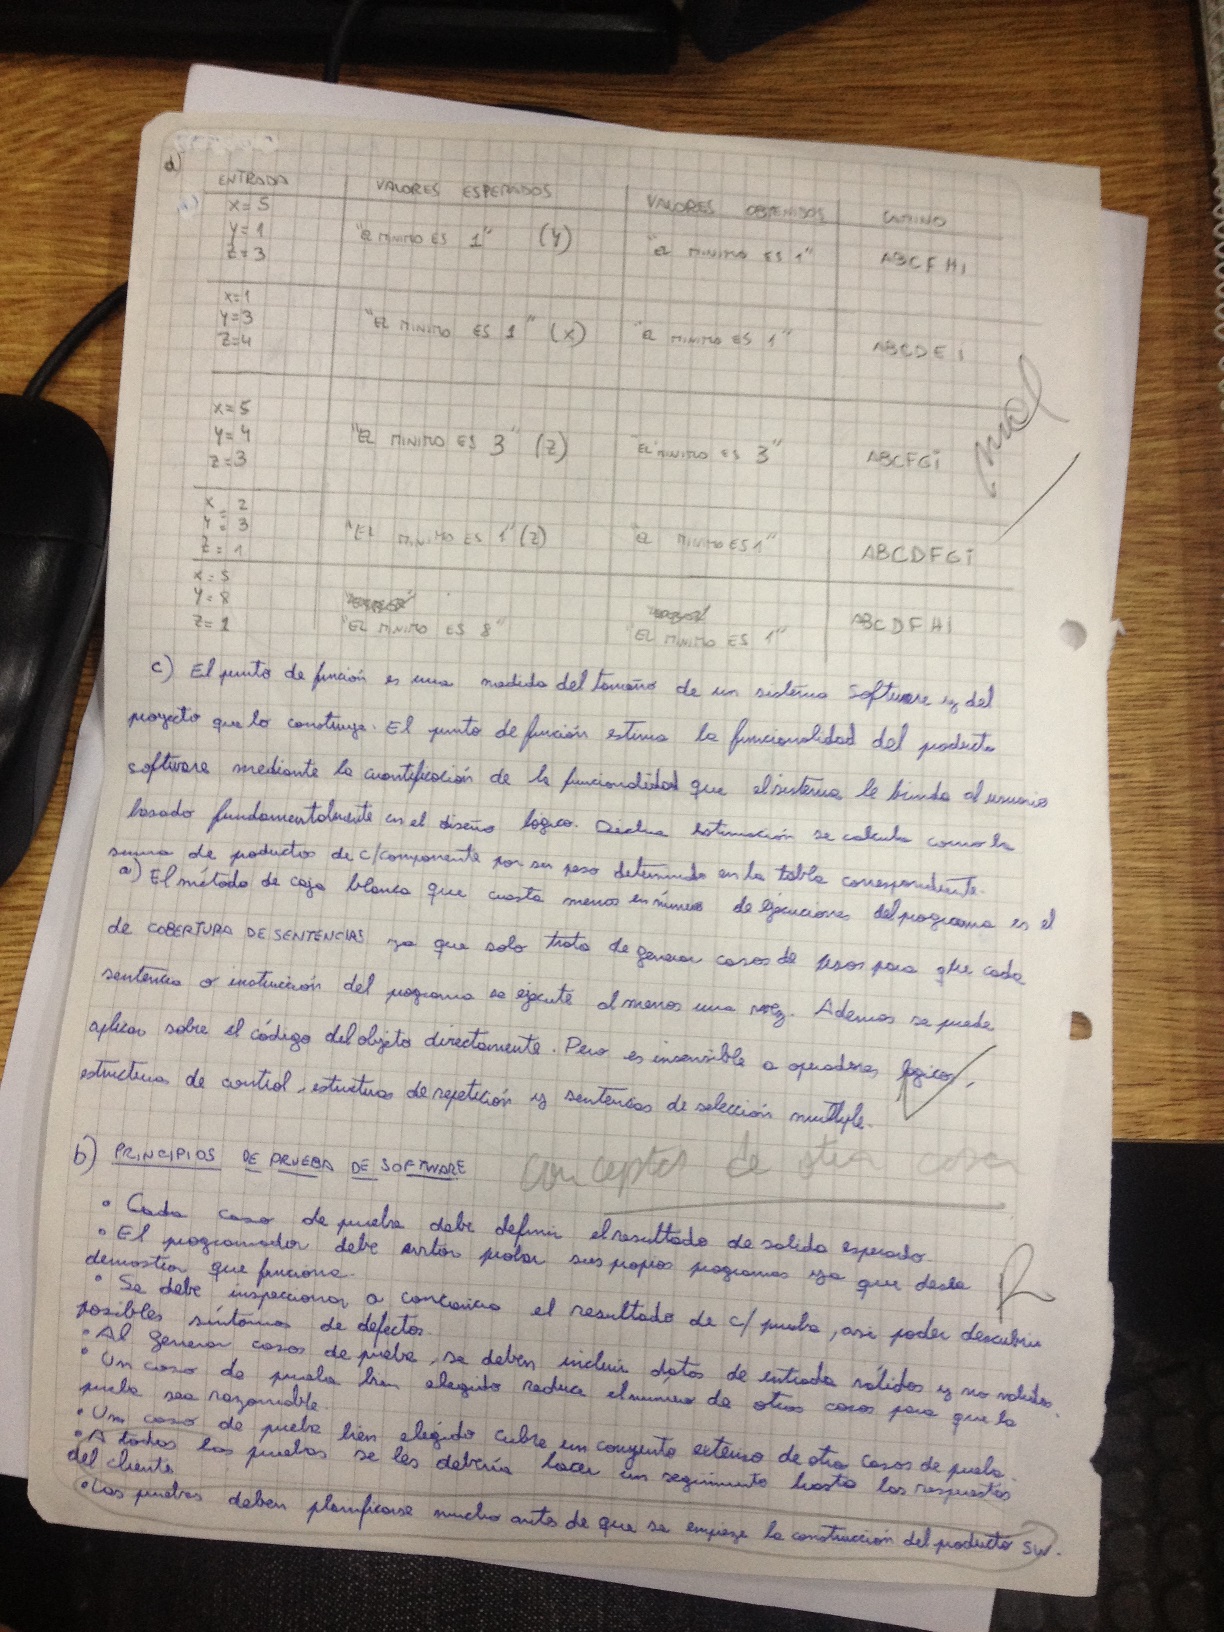 d)
ENTRADA VALORES ESPERADOS VALORES OBTENIDOS CAMINO
X=5
Y=1 "EL MINIMO ES 1" (Y) "EL MINIMO ES 1" ABCFHI
Z=3
X=1
Y=3 "EL MINIMO ES 1" (X) "EL MINIMO ES 1" ABCDEI
Z=4
X=5
Y=4 "EL MINIMO ES 3" (Z) "EL MINIMO ES 3" ABCFGI
Z=3
mal
X=2
Y=3 "EL MINIMO ES 1" (Z) "EL MINIMO ES 1" ABCDFGI
Z=1
X=5
Y=8
Z=1 "EL MINIMO ES 8" "EL MINIMO ES 1" ABCDFHI
c) El punto de función es una medida del tamaño de un sistema software y del
proyecto que lo construye. El punto de función estima la funcionalidad del producto
software mediante la cuantificación de la funcionalidad que el sistema le brinda al usuario
basado fundamentalmente en el diseño logico. Dicha estimación se calcula como la
suma de productos de c/componente por su peso determinado en la tabla correspondiente.
a) El método de caja blanca que cuesta menos en número de ejecuciones del programa es el
de COBERTURA DE SENTENCIAS ya que solo trata de generar casos de para que cada
sentencia o instrucción del programa se ejecute al menos una vez. Ademas se puede
aplicar sobre el código del objeto directamente. Pero es insensible a operadores logicos,
estructuras de control, estructuras de repetición y sentencias de selección multiple.
b) PRINCIPIOS DE PRUEBA DE SOFTWARE
conceptos de otra cosa
• Cada caso de prueba debe definir el resultado de salida esperado.
• El programador debe evitar probar sus propios programas ya que desea
demostrar que funciona.
R
• Se debe inspeccionar a conciencia el resultado de c/ prueba, asi poder descubrir
posibles síntomas de defectos.
• Al generar casos de prueba, se deben incluir datos de entrada válidos y no validos.
• Un caso de prueba bien elegido reduce el número de otros casos para que la
prueba sea razonable.
• Un caso de prueba bien elegido cubre un conjunto extenso de otro casos de prueba.
• A todas las pruebas se les debería hacer un seguimiento hasta los respuestos
del cliente
• Las pruebas deben planificarse mucho antes de que se empieze la construcción del producto SW.